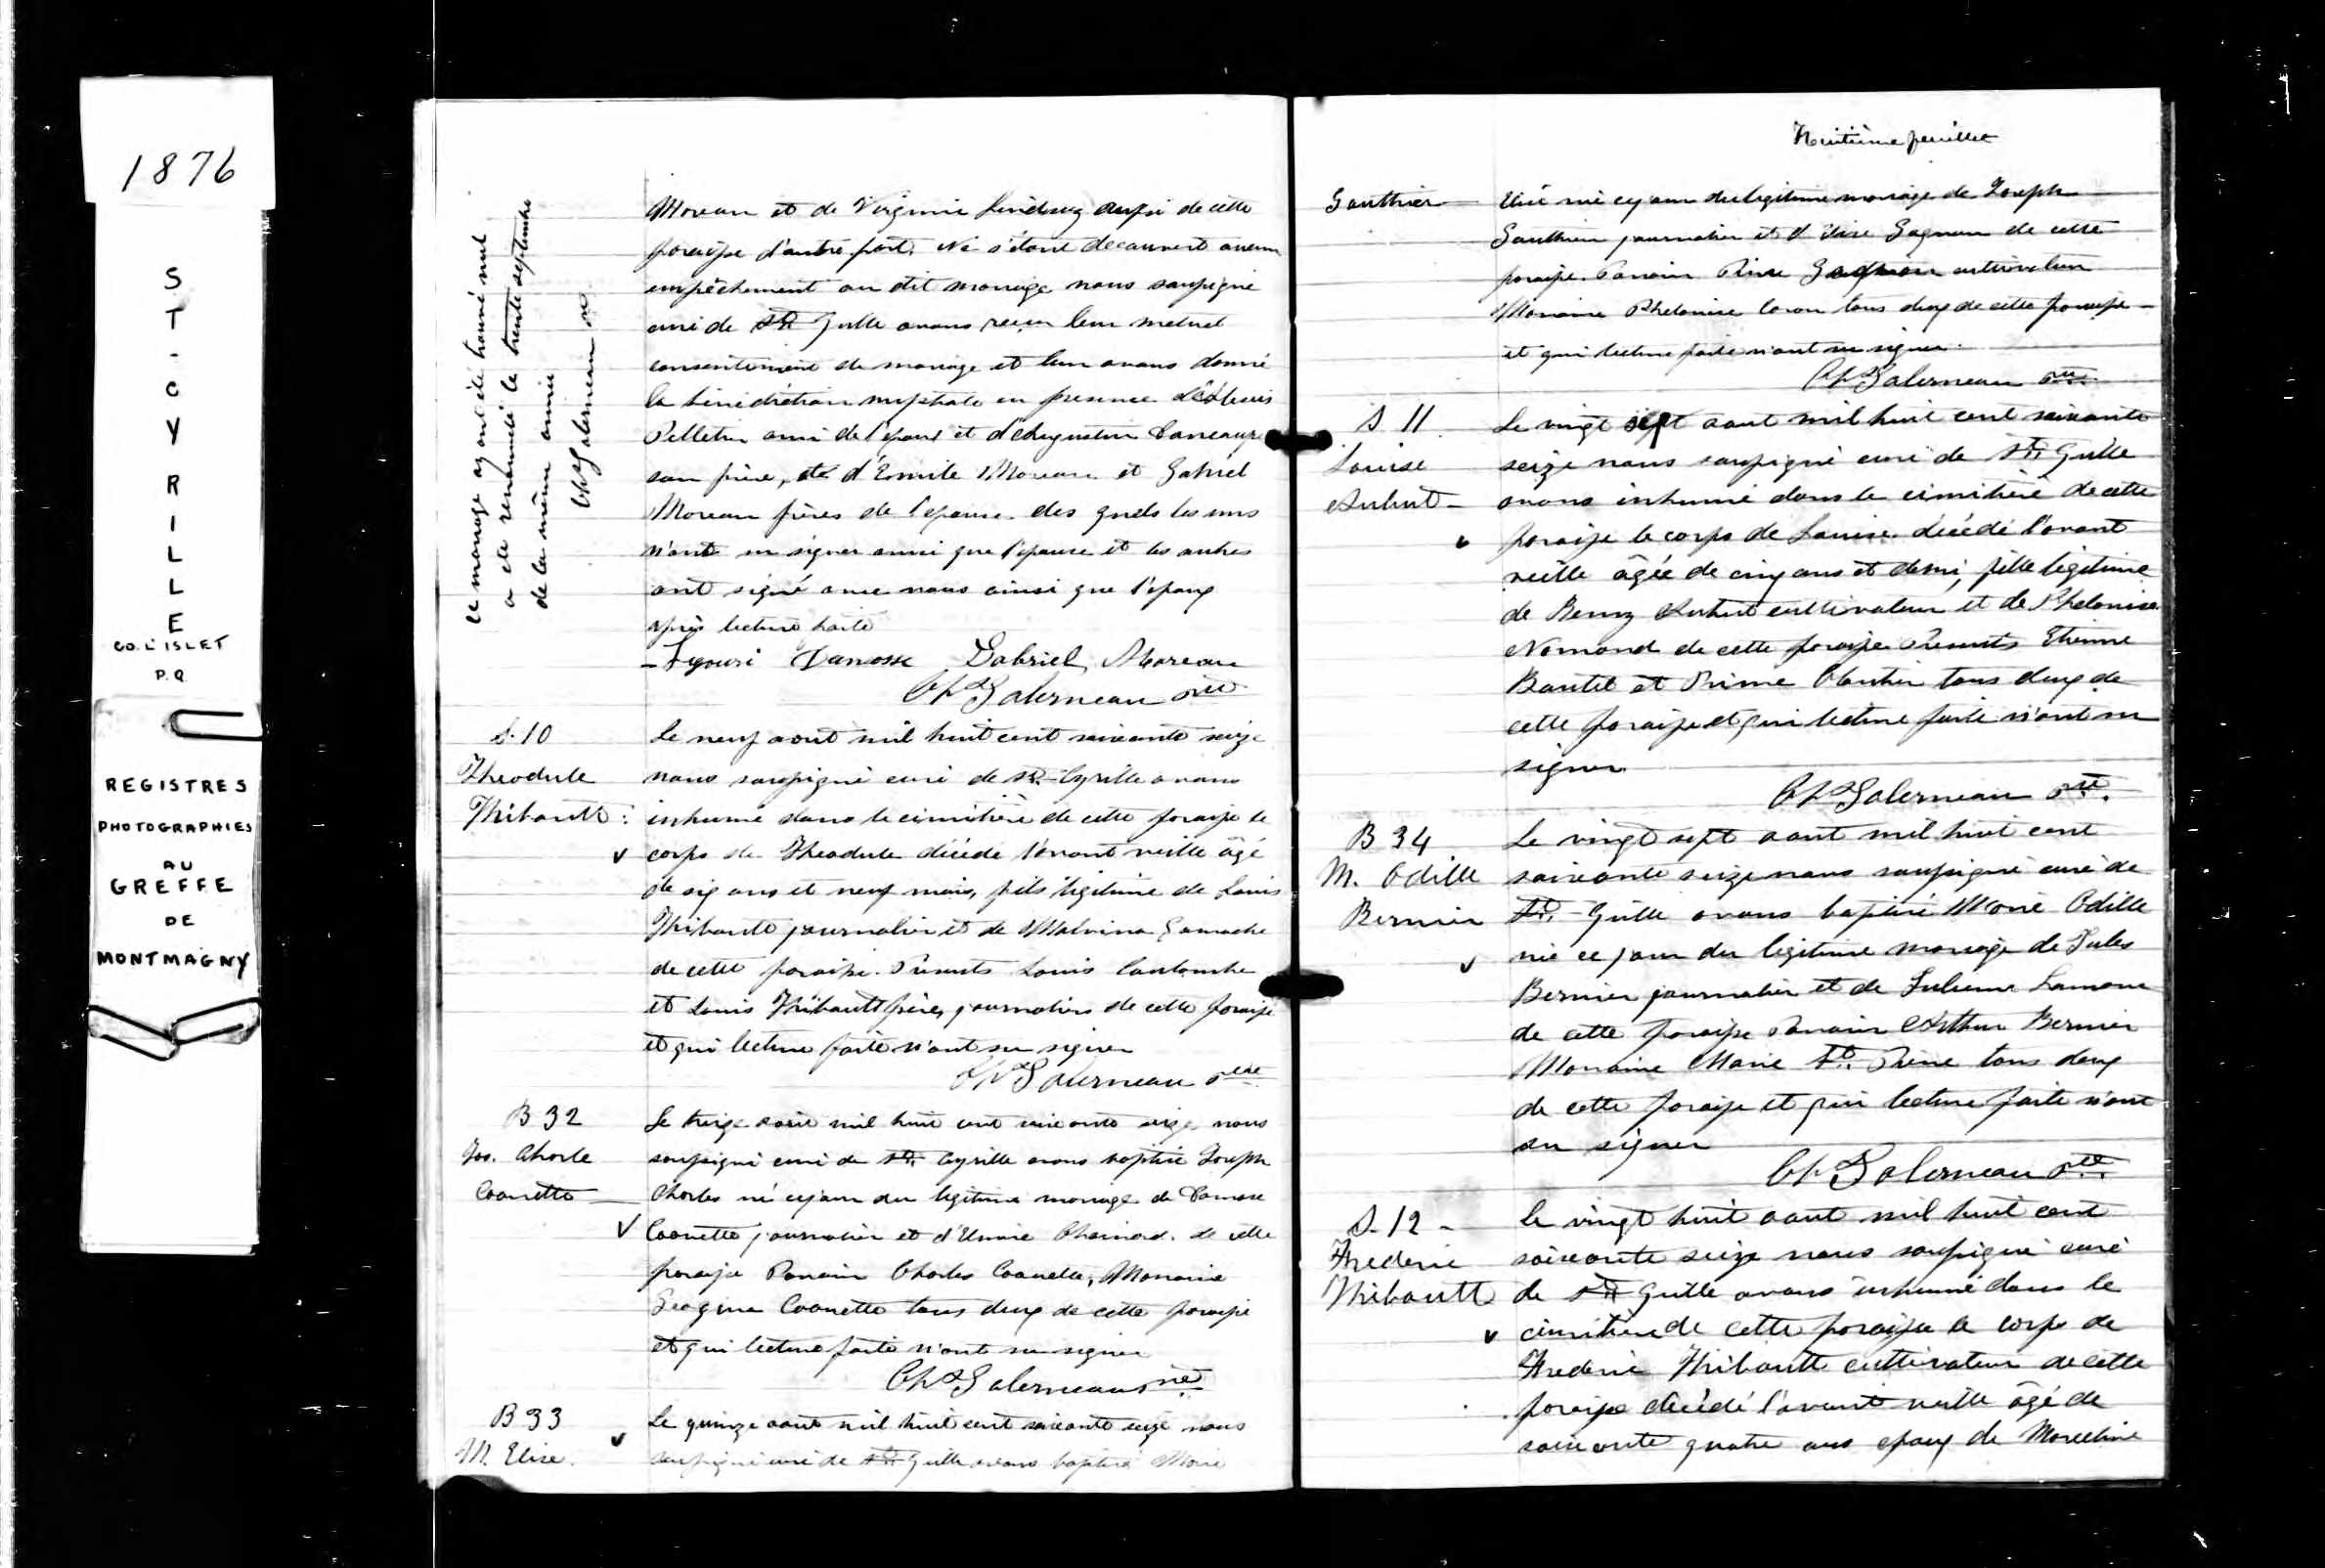 1876
ST-CYRILLE
CO. L'ISLET
P.Q.
REGISTRES
PHOTOGRAPHIES
AU
GREFFE
DE
MONTMAGNY
Ce mariage ayant été trouvé nul
a été renouvelé le trente septembre
de la même année
Moreau et de Virginie Lindsay aussi de cette
paroisse d'autre part. Ne s'étant découvert aucun
empêchement au dit mariage nous soussigné
curé de St. Cyrille avons reçu leur mutuel
consentement de mariage et leur avons donné
la bénédiction nuptiale en présence de
Pelletier ami de l'époux et d'
son frère, et d'Emile Moreau et Gabriel
Moreau frères de l'épouse. des quels les uns
n'ont su signer ainsi que l'épouse et les autres
ont signé avec nous ainsi que l'époux
après lecture faite
Gabriel Moreau
S. 10
Theodule
Thibault
Le neuf aout mil huit cent soixante seize
nous soussigné curé de St. Cyrille avons
inhumé dans le cimitière de cette paroisse le
corps de Theodule décédé l'avant veille âgé
de six ans et neuf mois, fils légitime de Louis
Thibault journalier et de Malvina Gamache
de cette paroisse. Présents Louis
et Louis Thibault frère, journaliers de cette paroisse
et qui lecture faite n'ont su signer
B 32
Jos. Charle
Caouette
Le treize août mil huit cent soixante seize nous
soussigné curé de St. Cyrille avons baptisé Joseph
Charles né ce jour du légitime mariage de Damase
Caouette journalier et d' Chainard. de cette
paroisse Parrain Charles Caouette, Marraine
Caouette tous deux de cette paroisse
et qui lecture faite n'ont su signer
B 33
M. Elise.
Le quinze aout mil huit cent soixante seize nous
soussigné curé de St. Cyrille avons baptisé Marie
Huitième feuillet
Gauthier
Elise née ce jour du légitime mariage de Joseph
Gauthier journalier et d'Elise Gagnon de cette
paroisse. Parrain Gagnon cultivateur
Marraine Phelonise Caron tous deux de cette paroisse
et qui lecture faite n'ont su signer.
S 11
Louise
Aubut
Le vingt sept aout mil huit cent soixante
seize nous soussigné curé de St. Cyrille
avons inhumé dans le cimitière de cette
paroisse le corps de Louise décédé l'avant
veille âgée de cinq ans et demi, fille légitime
de Remy Aubut cultivateur et de Phelonise
Normand de cette paroisse Présents Etienne
et Prime Cloutier tous deux de
cette paroisse et qui lecture faite n'ont su
signer
B 34
M. Odille
Bernier
Le vingt sept aout mil huit cent
soixante seize nous soussigné curé de
St. Cyrille avons baptisé Marie Odille
née ce jour du légitime mariage de Jules
Bernier journalier et de Julienne
de cette paroisse Parrain Arthur Bernier
Marraine Marie St. Pierre tous deux
de cette paroisse et qui lecture faite n'ont
su signer
S. 12
Frederic
Thibault
Le vingt huit aout mil huit cent
soixante seize nous soussigné curé
de St. Cyrille avons inhumé dans le
cimitière de cette paroisse le corps de
Frederic Thibault cultivateur de cette
paroisse décédé l'avant veille âgé de
soixante quatre ans époux de Marceline